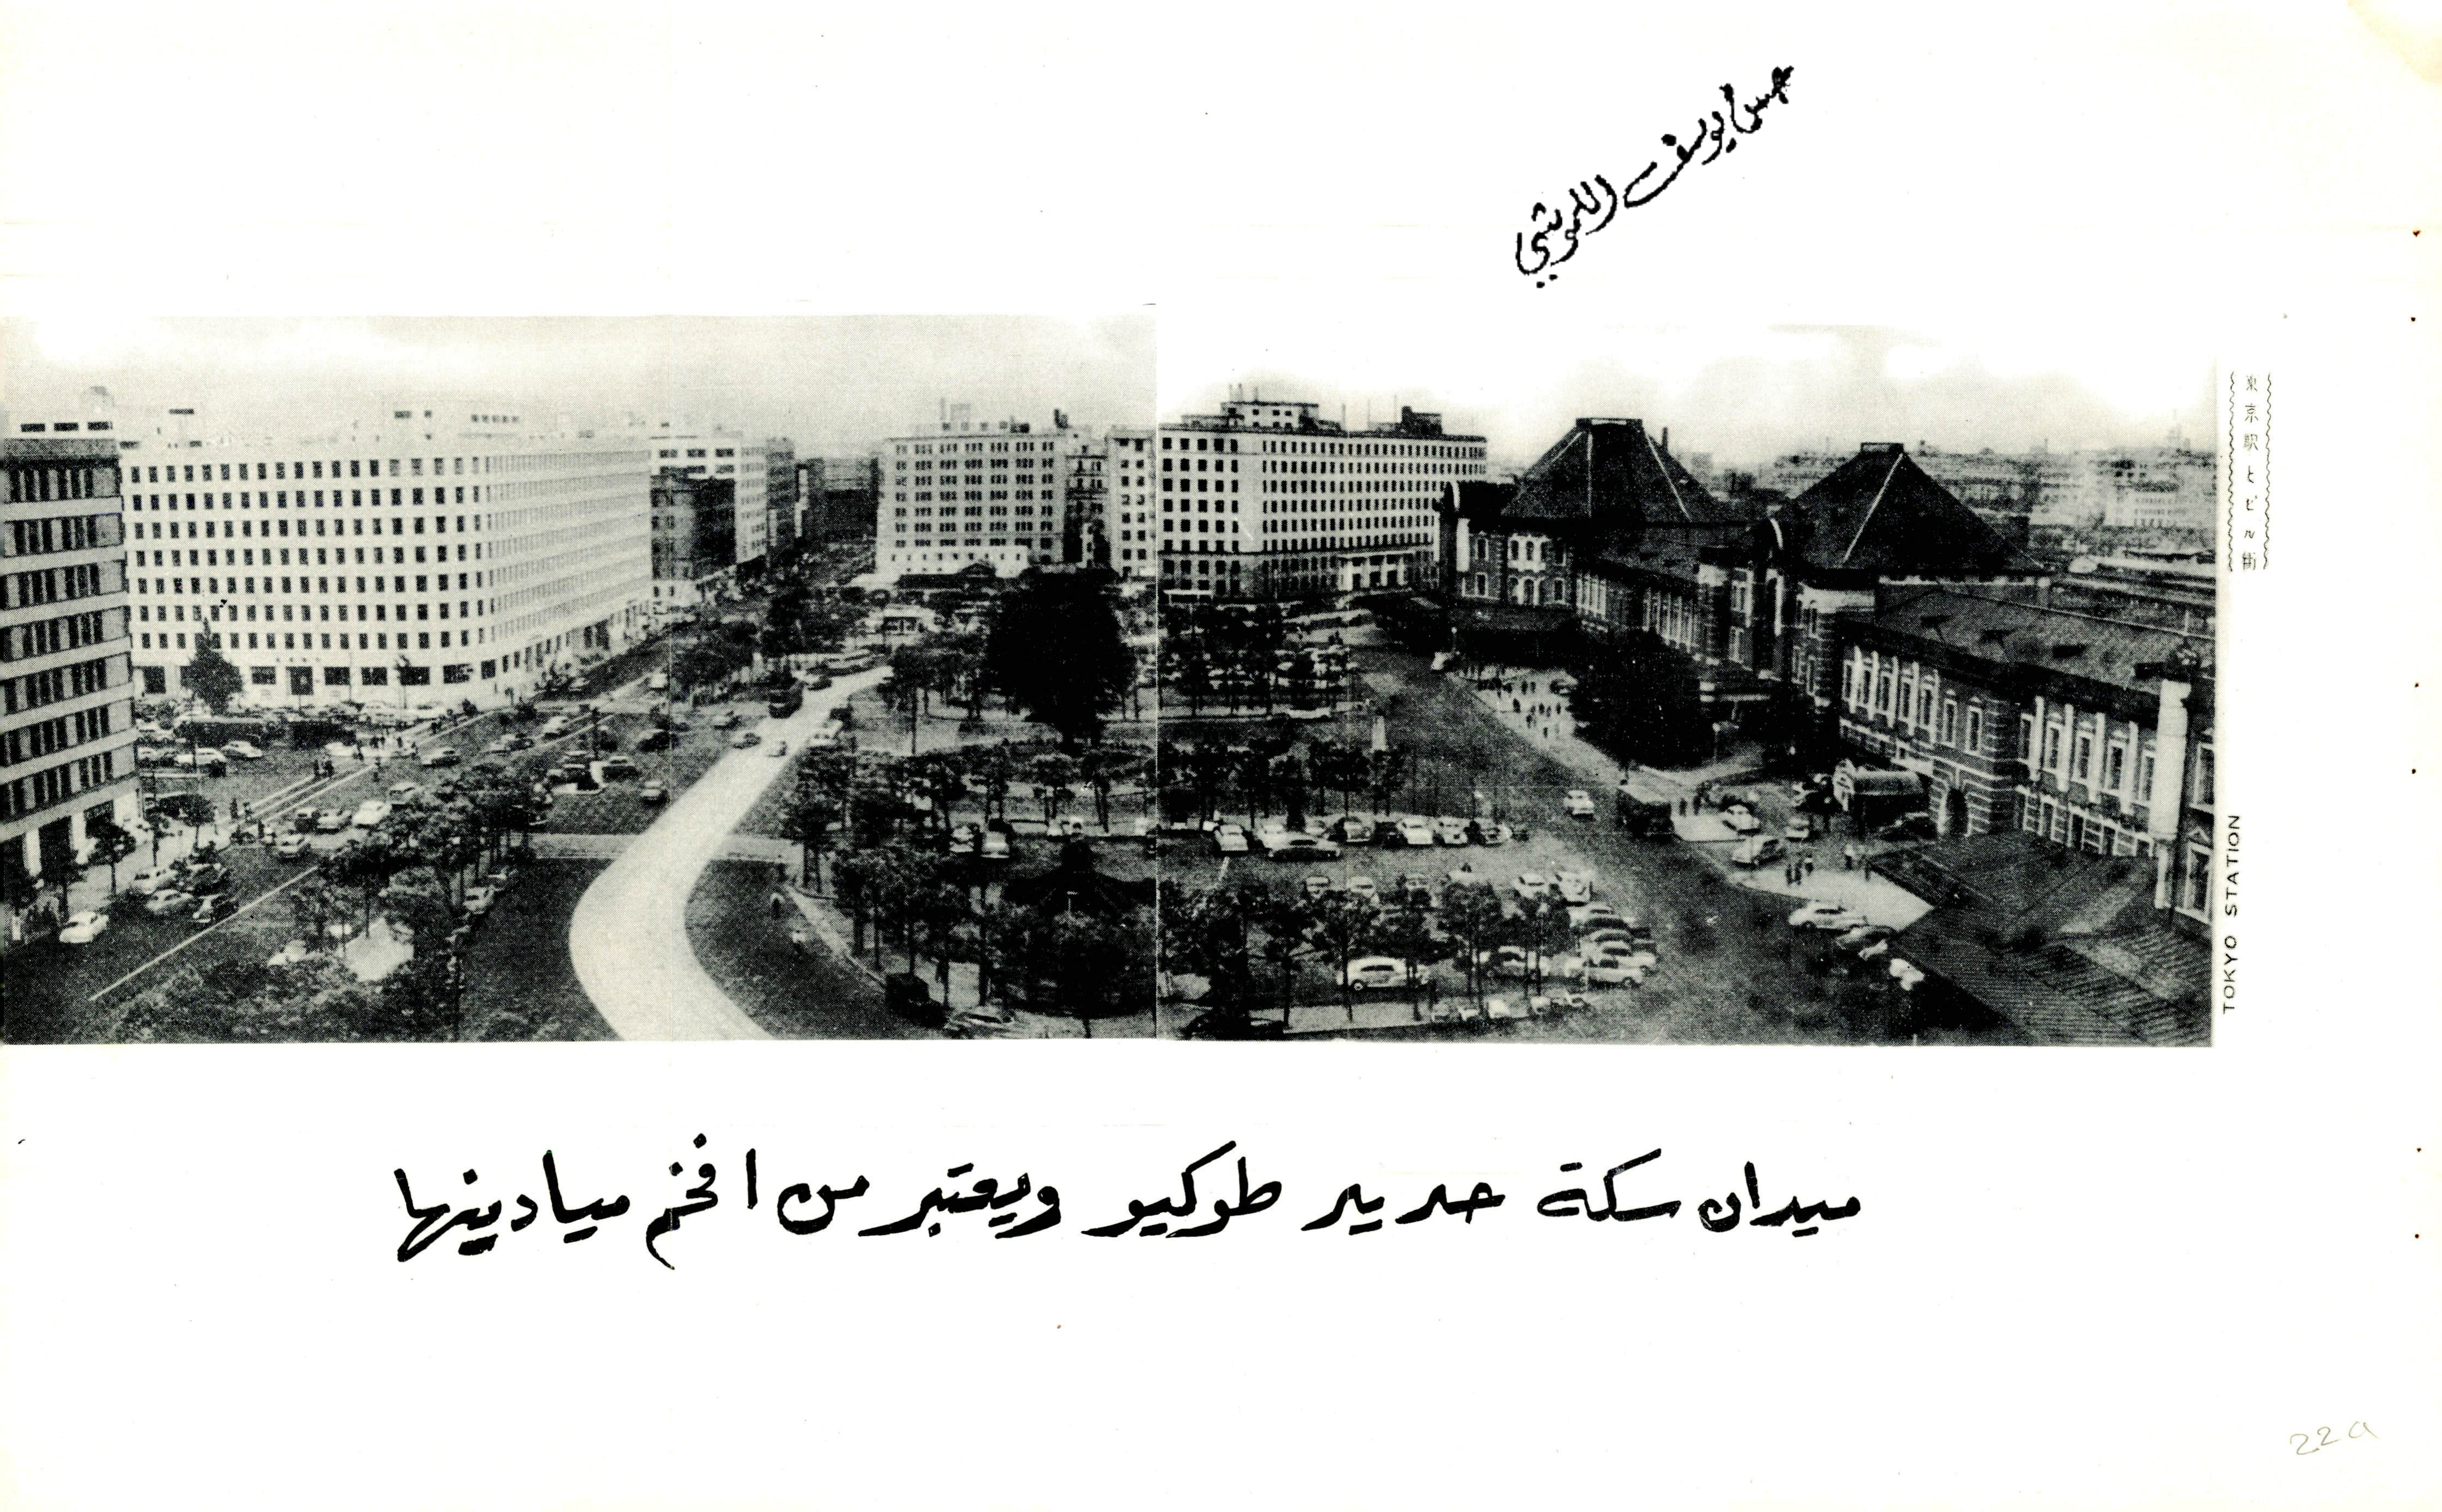 عيسى يوسف اللوغاني
東京駅とビル街
TOKYO STATION
ميدان سكة حديد طوكيو ويعتبر من افخم ميادينها
22a